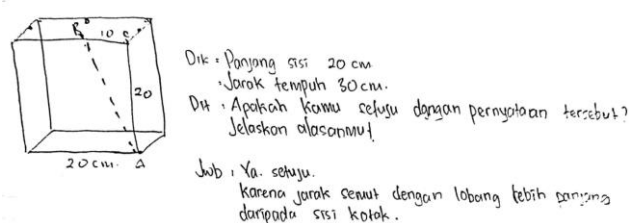 B
10 C
20
20 cm. A
Dik : Panjang sisi 20 cm
: Jarak tempuh 30 cm.
Dit : Apakah kamu setuju dengan pernyataan tersebut?
Jelaskan alasanmu!
Jwb : Ya. setuju.
Karena jarak semut dengan lobang lebih panjang
daripada sisi kotak.